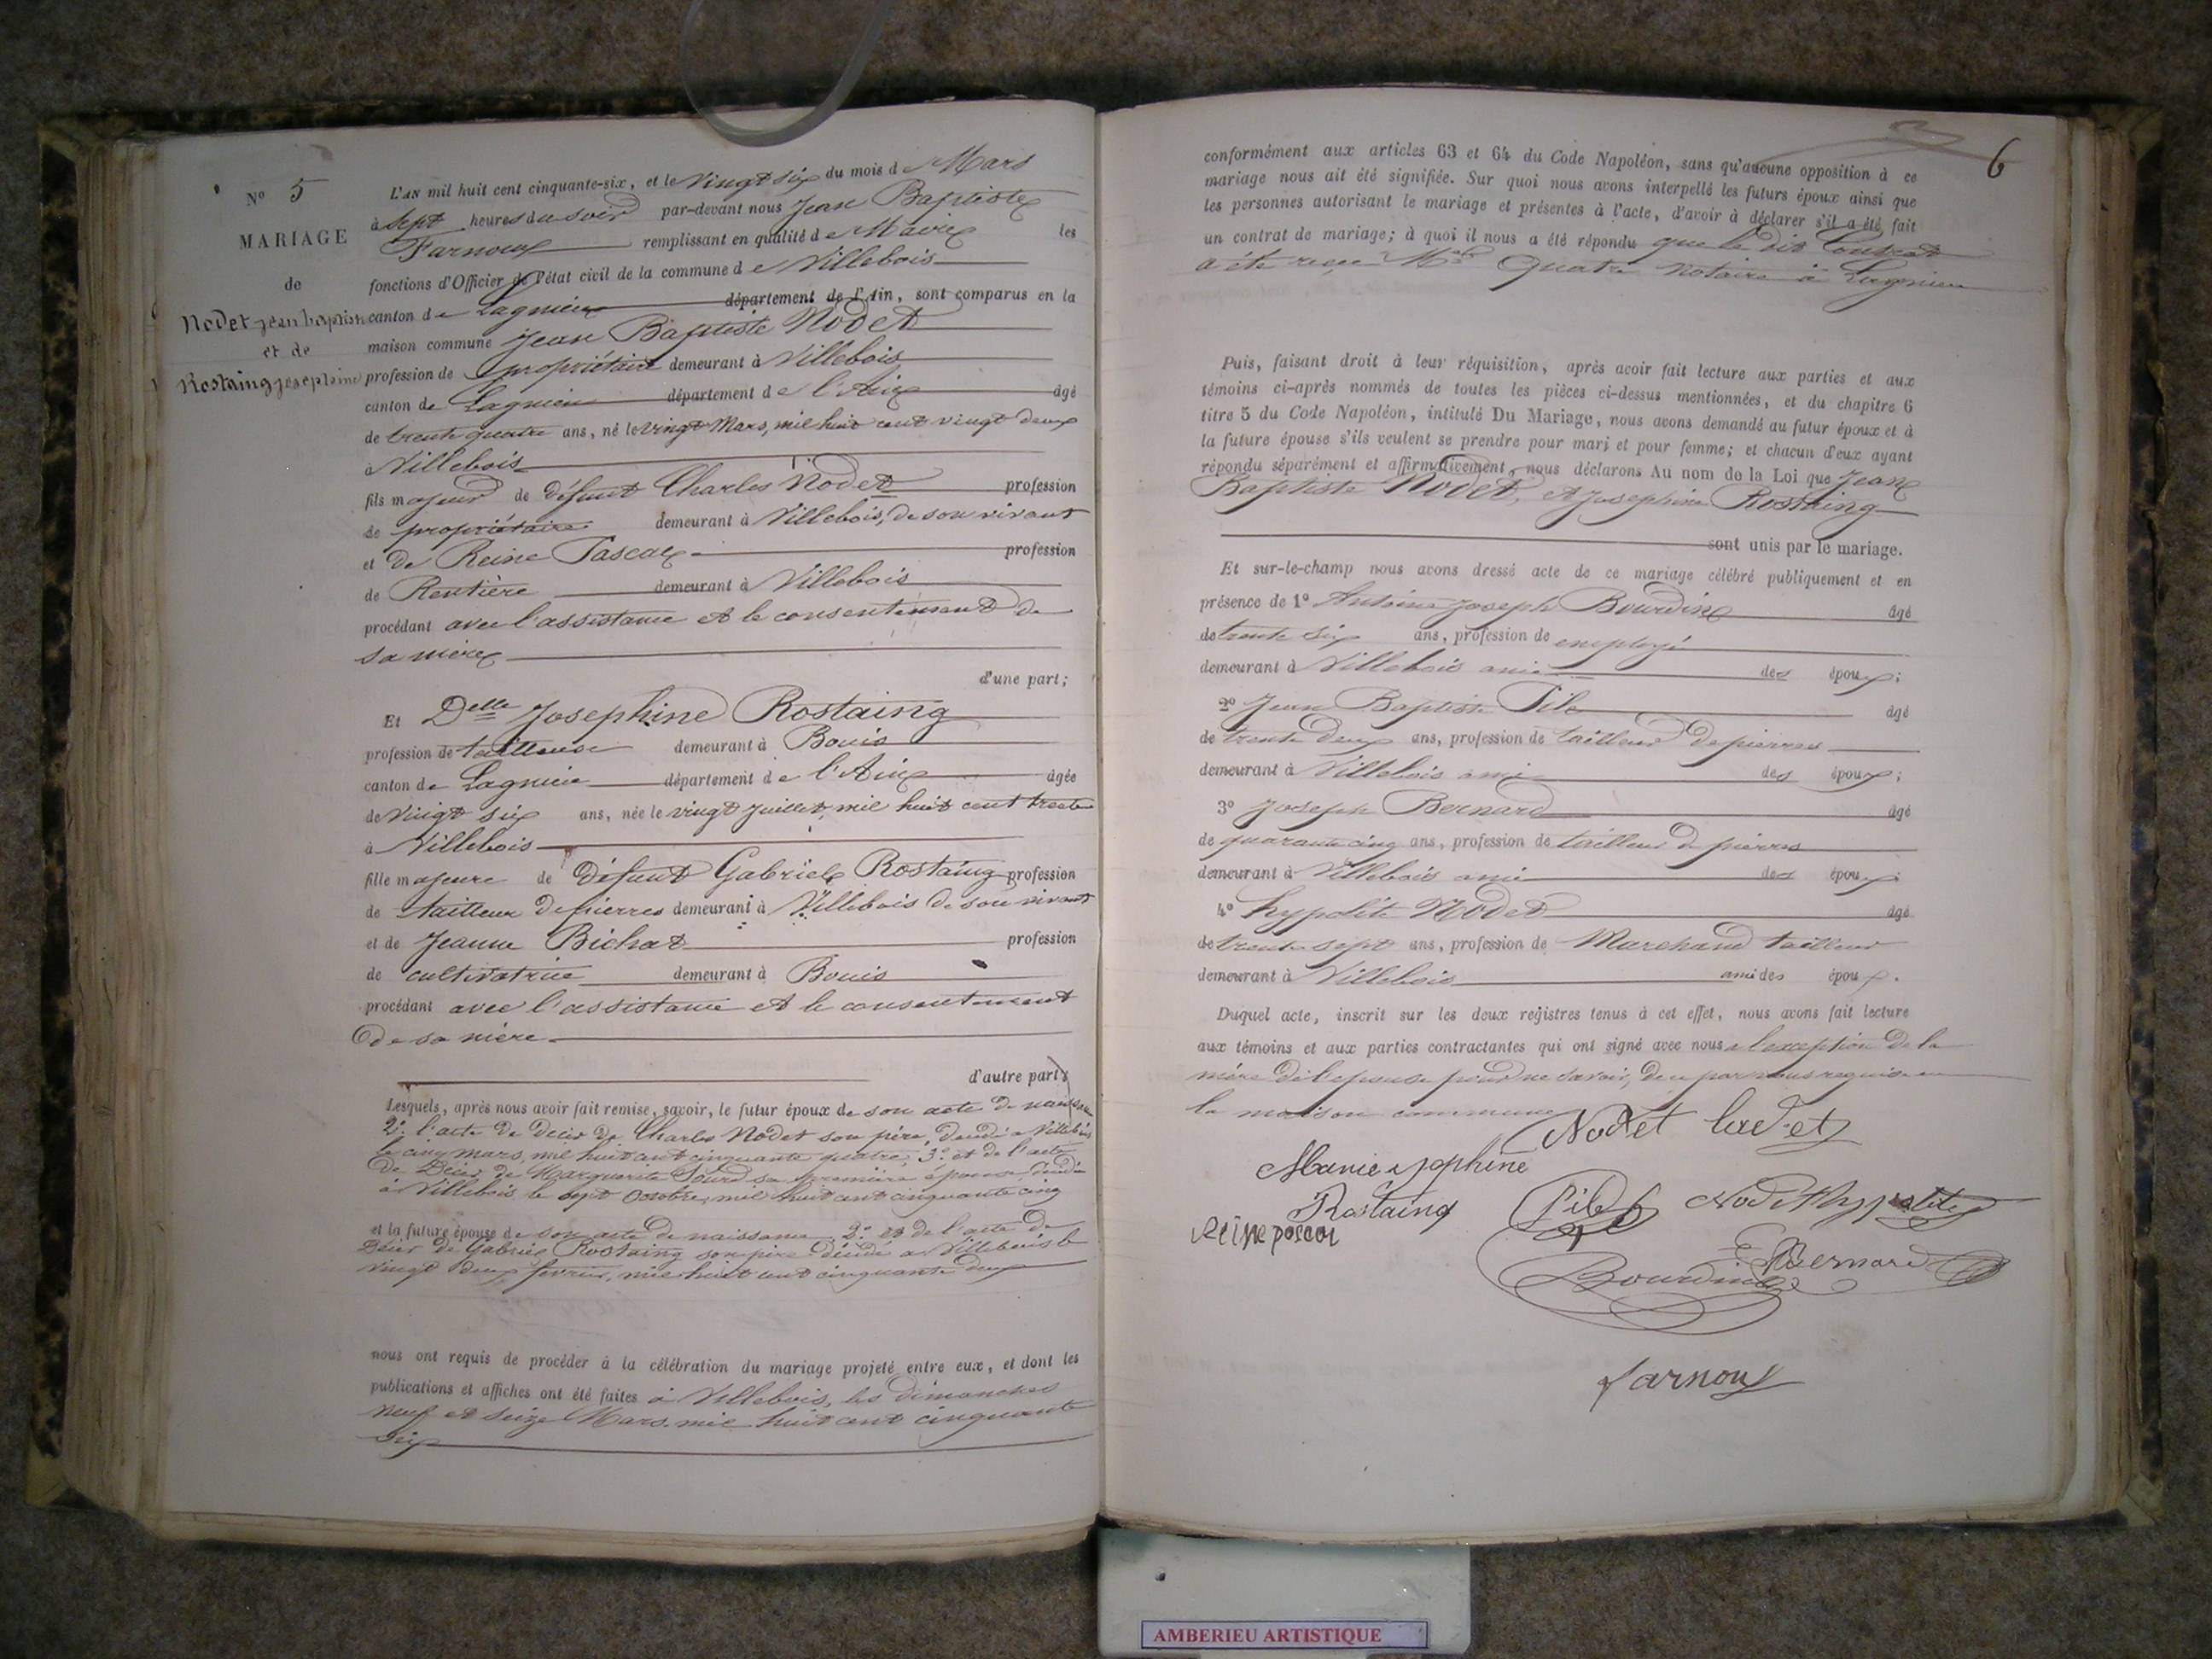 Nº 5
MARIAGE
de
Nodet jean baptiste
et de
Rostaing josephine
L'AN mil huit cent cinquante-six, et le Vingt six du mois de Mars
à sept heures du soir par-devant nous Jean Baptiste
Farnoux remplissant en qualité de Maire les
fonctions d'Officier de l'état civil de la commune de Villebois
canton de Lagnieu département de l'Ain, sont comparus en la
maison commune Jean Baptiste Nodet
profession de propriétaire demeurant à Villebois
canton de Lagnieu département de l'Ain âgé
de trente quatre ans, né le vingt Mars, mil huit cent vingt deux
à Villebois
fils majeur de défunt Charles Nodet profession
de propriétaire demeurant à Villebois, de son vivant
et de Reine Pascal profession
de Rentière demeurant à Villebois
procédant avec l'assistance et le consentement de
sa mère
d'une part;
Et Delle Josephine Rostaing
profession de tailleuse demeurant à Bouis
canton de Lagnieu département de l'Ain âgée
de vingt six ans, née le vingt Juillet, mil huit cent trente
à Villebois
fille majeure de défunt Gabriel Rostaing profession
de tailleur de pierres demeurant à Villebois de son vivant
et de Jeanne Bichat profession
de cultivatrice demeurant à Bouis
procédant avec l'assistance et le consentement
de sa mère
d'autre part;
Lesquels, après nous avoir fait remise, savoir, le futur époux de son acte de naissance
2º l'acte de décès de Charles Nodet son père, décédé à Villebois
le cinq mars, mil huit cent cinquante quatre, 3º et de l'acte
de Décès de Marguerite Sourd sa première épouse, décédée
à Villebois le sept Octobre, mil huit cent cinquante cinq
et la future épouse de son acte de naissance 2º et de l'acte de
Décès de Gabriel Rostaing son père décédé à Villebois le
vingt deux février, mil huit cent cinquante deux
nous ont requis de procéder à la célébration du mariage projeté entre eux, et dont les
publications et affiches ont été faites à Villebois, les dimanches
neuf et seize Mars mil huit cent cinquante
six
6
conformément aux articles 63 et 64 du Code Napoléon, sans qu'aucune opposition à ce
mariage nous ait été signifiée. Sur quoi nous avons interpellé les futurs époux ainsi que
les personnes autorisant le mariage et présentes à l'acte, d'avoir à déclarer s'il a été fait
un contrat de mariage; à quoi il nous a été répondu que le dit Contrat
a été reçu Quatre notaire à Lagnieu
Puis, faisant droit à leur réquisition, après avoir fait lecture aux parties et aux
témoins ci-après nommés de toutes les pièces ci-dessus mentionnées, et du chapitre 6
titre 5 du Code Napoléon, intitulé Du Mariage, nous avons demandé au futur époux et à
la future épouse s'ils veulent se prendre pour mari et pour femme; et chacun d'eux ayant
répondu séparément et affirmativement, nous déclarons Au nom de la Loi que Jean
Baptiste Nodet, et Josephine Rostaing
sont unis par le mariage.
Et sur-le-champ nous avons dressé acte de ce mariage célébré publiquement et en
présence de 1º Antoine Joseph Bourdin âgé
de trente six ans, profession de employé
demeurant à Villebois ami des époux;
2º Jean Baptiste Pile âgé
de trente deux ans, profession de tailleur de pierres
demeurant à Villebois ami des époux;
3º Joseph Bernard âgé
de quarante cinq ans, profession de tailleur de pierres
demeurant à Villebois ami des époux
4º hypolite Nodet âgé
de trente sept ans, profession de Marchand tailleur
demeurant à Villebois ami des époux.
Duquel acte, inscrit sur les deux registres tenus à cet effet, nous avons fait lecture
aux témoins et aux parties contractantes qui ont signé avec nous a l'exception de la
mère de l'épouse pour ne savoir, de ce par nous requise en
la maison commune
Nodet cadet
Marie Josephine
Rostaing
Pile Nodet hyppolite
Reine pascal
Bernard
Bourdin
farnoux
AMBERIEU ARTISTIQUE